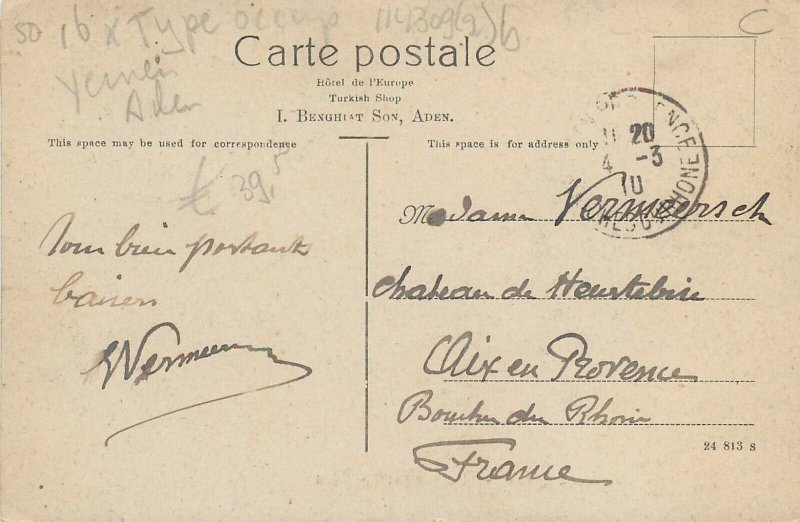 50 16 x Type occup 114B09(2)b
C
Yemen
Aden
Carte postale
Hôtel de l'Europe
Turkish Shop
I. Benghiat Son, Aden.
This space may be used for correspondence
This space is for address only
£ 39,5
20
4 -3
10
Tous bien portants
baisers
Vermeer
Madame Vermeersch
chateau de Heurtebise
Aix en Provence
Bouches du Rhone
France
24 813 s